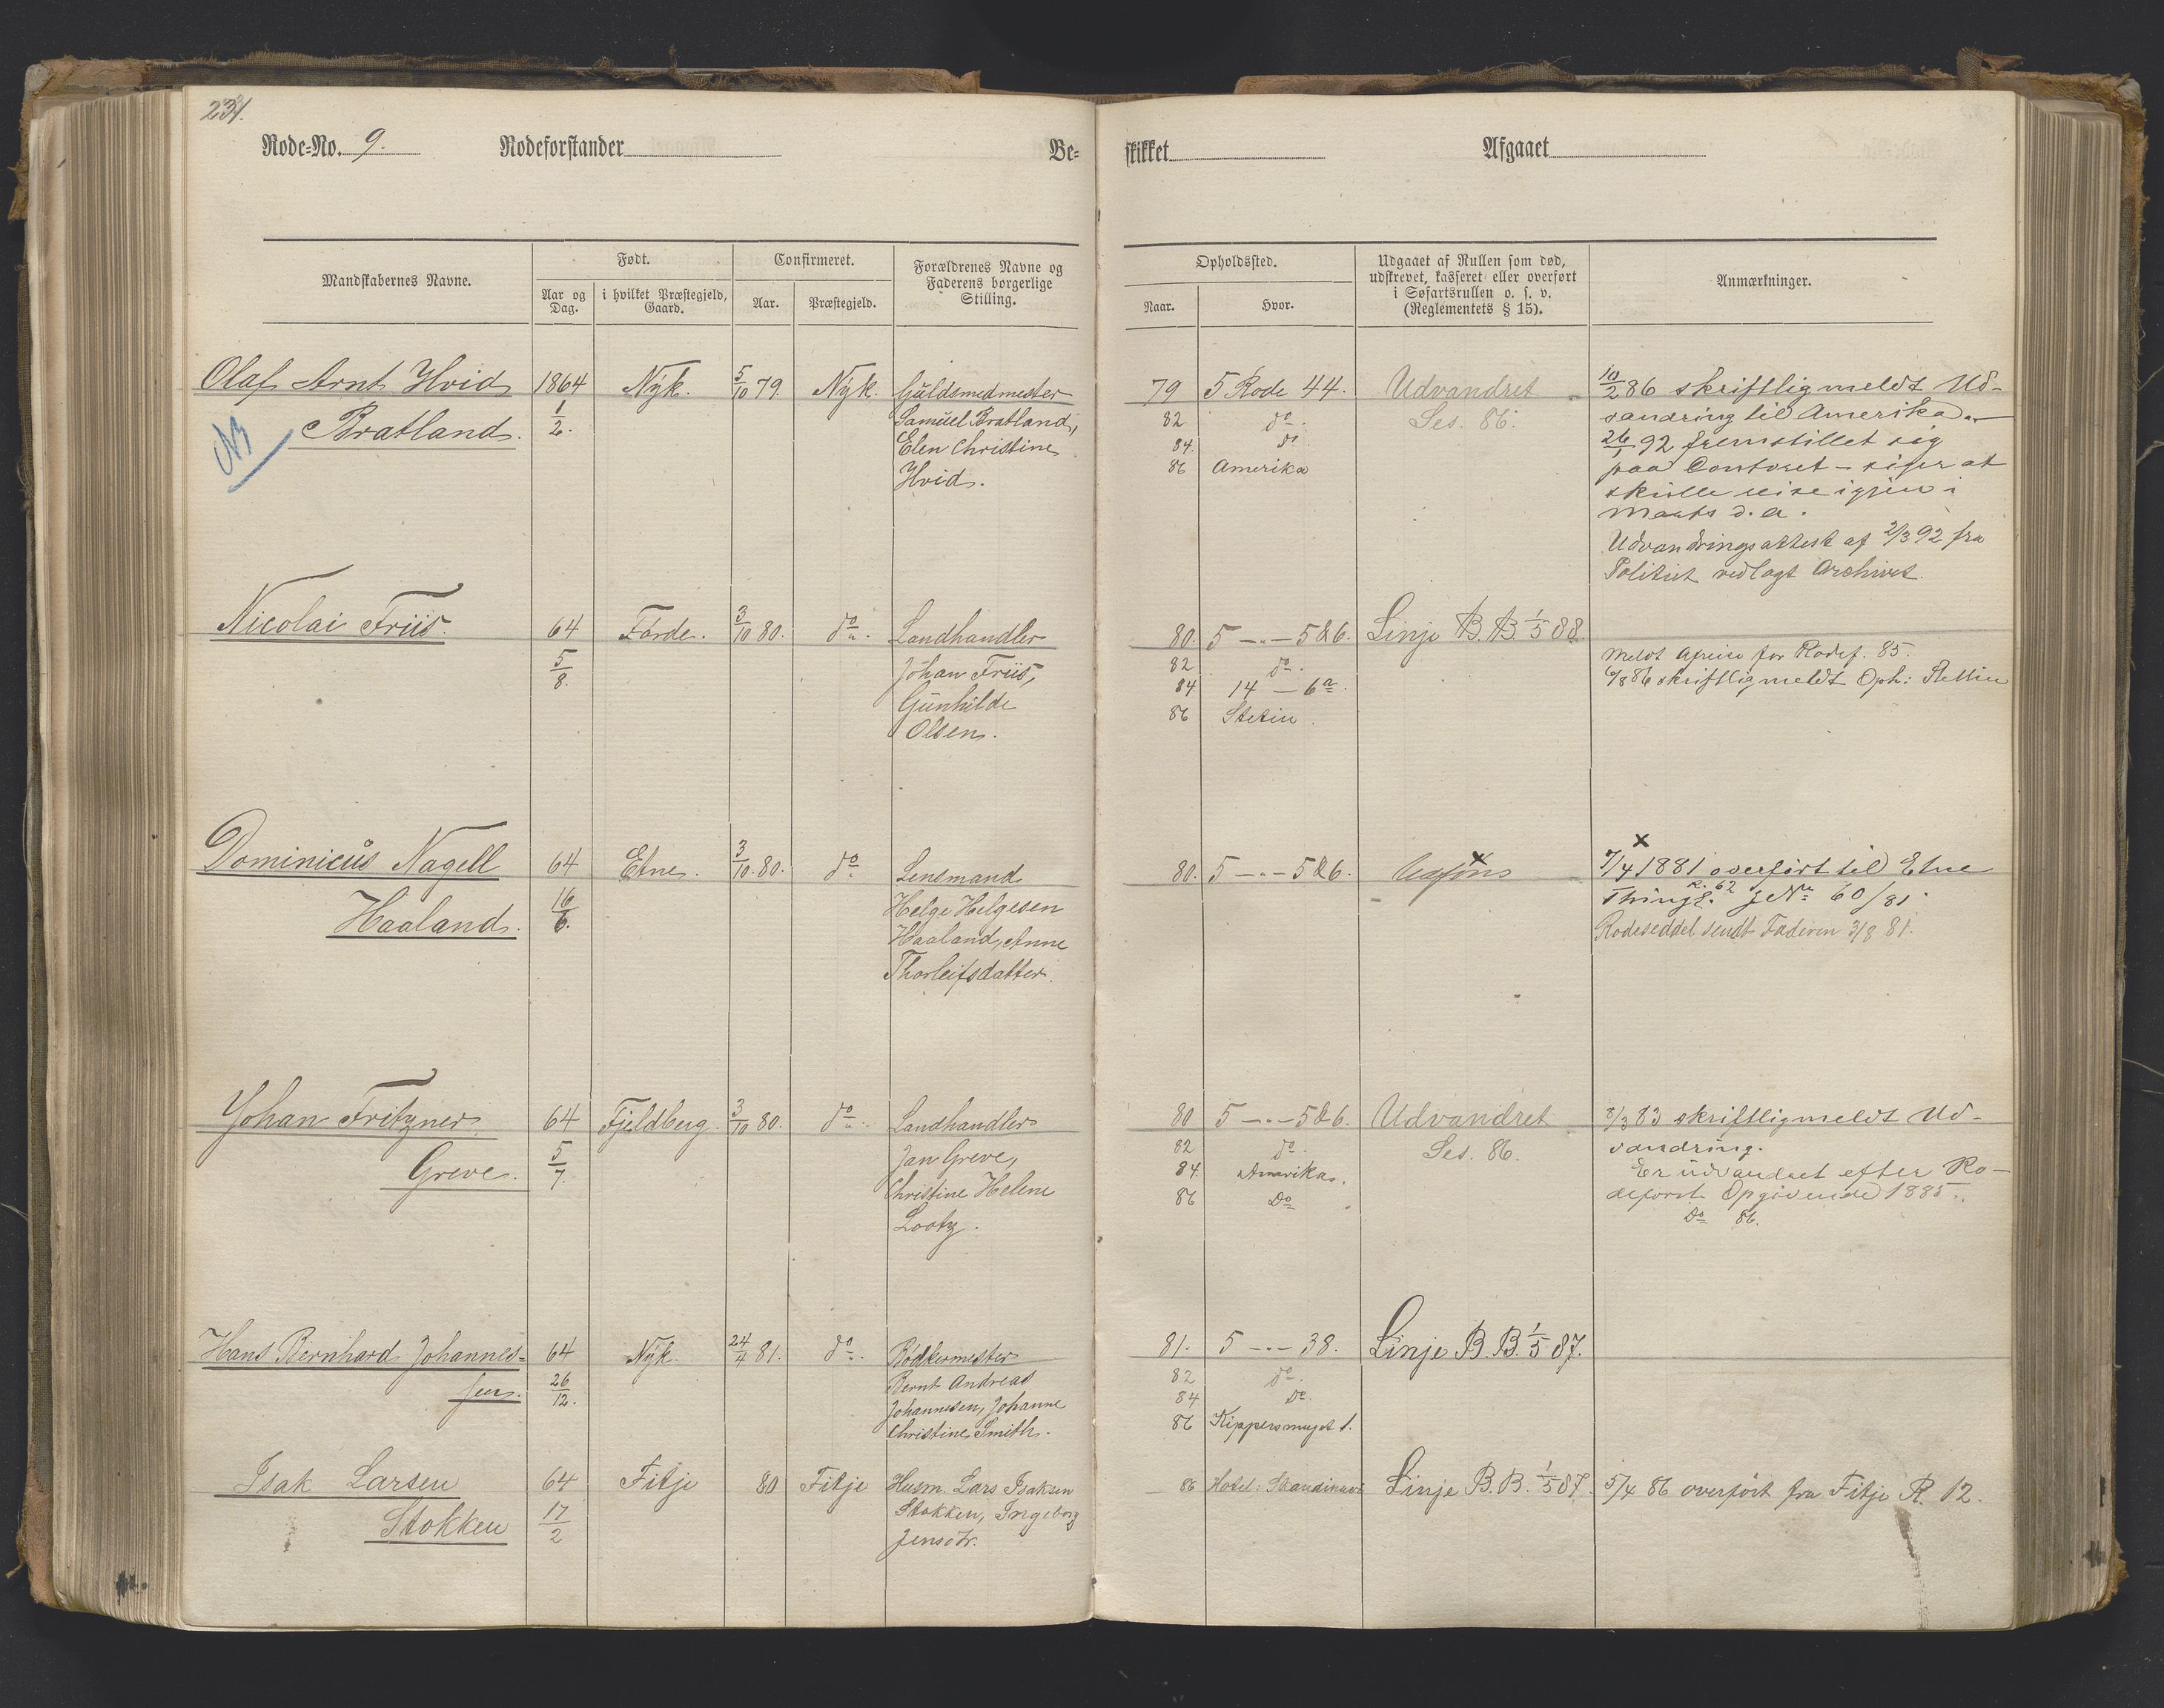 234.
Rode-No. 9. Rodeforstander Be-
skikket Afgaaet
Mandskabernes Navne.
Født.
Aar og Dag.
i hvilket Præstegjeld, Gaard.
Confirmeret.
Aar.
Præstegjeld.
Forældrenes Navne og
Faderens borgerlige
Stilling.
Opholdssted.
Naar.
Hvor.
Udgaaet af Rullen som død,
udskrevet, kasseret eller overført
i Søfartsrullen o. s. v.
(Reglementets § 15).
Anmærkninger.
Olaf Arnt Hvid 1864 Nyk. 5/10 79. Nyk. Guldsmedmester
Bratland. 1/2. Samuel Bratland,
NB
Elen Christine
Hvid.
79 5 Rode 44. Udvandret
82 do. Ses. 86.
84. do
86 Amerika
10/2 86 skriftlig meldt Ud-
vandring til Amerika.
26/1 92 fremstillet sig
paa Contoret – siger at
skulle reise igjen i
Marts d.a.
Udvandringsattest af 2/3 92 fra
Politiet vedlagt Archivet.
Nicolai Friis. 64 Førde. 3/10 80. do. Landhandler
5/8. Johan Friis,
Gunhilde
Olsen.
80. 5 — „ — 5&6. Linje B.B. 1/5 88.
82 do.
84 14 — 6a.
86 Stetin.
Meldt Afreise for Rodef. 85.
6/8 86 skriftlig meldt Oph: Stettin
Dominicus Nagell 64 Etne. 3/10. 80. do Lensmand
Haaland. 16/6. Helge Helgesen
Haaland, Anne
Thorleifsdatter.
80. 5 — „ — 5&6.
x
x
7/4 1881 overført til Etne
Thingl. R. 62 JNo 60/81.
Rodeseddel sendt Faderen 3/8 81.
Johan Fritzner 64 Fjeldberg. 3/10 80. do. Landhandler
Greve. 5/7. Jan Greve,
Christine Helene
Lootz.
80 5 — „ — 5&6. Udvandret
82 do. Ses. 86.
84. Amerika.
86 Do
8/3 83 skriftlig meldt Ud-
vandring.
Er udvandret efter Ro-
deforst. Opgivende 1885.
Do 86.
Hans Bernhard Johannes- 64 Nyk. 24/4 81. do. Bødkermester
sen. 26/12. Bernt Andreas
Johannesen, Johanne
Christine Smith.
81. 5 — „ — 38. Linje B.B. 1/5 87.
82 do.
84 Do.
86 Kippersmuget 1.
Isak Larsen 64 Fitje 80 Fitje Husm. Lars Isaksen
Stokken 17/2 Stokken, Ingeborg
Jensdtr.
86 Hotel: Skandinavi Linje B.B. 1/5 87. 5/4 86 overført fra Fitje R. 12.